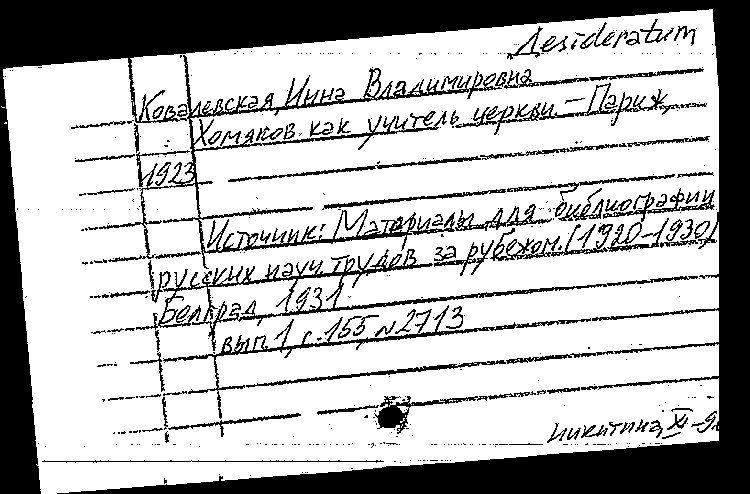 Desideratum
Ковалевская, Инна Владимировна
Хомяков как учитель церкви. – Париж,
1923
Источник: Материалы для библиографии
русских науч. трудов за рубежом. (1920-1930)
Белград, 1931.
вып. 1, с. 155, №2713
Никитина, XI -9